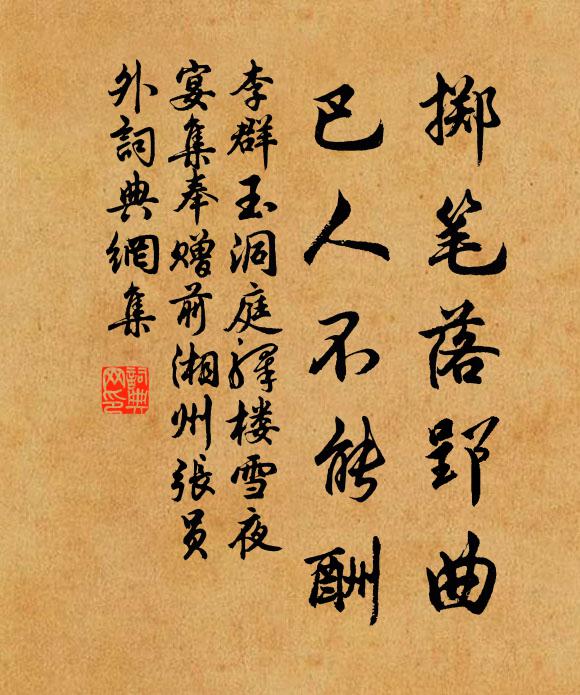 掷笔落郢曲
巴人不能酬
李群玉洞庭驿楼雪夜
宴集奉赠前湘州張员
外詞典網集
詞典
网印